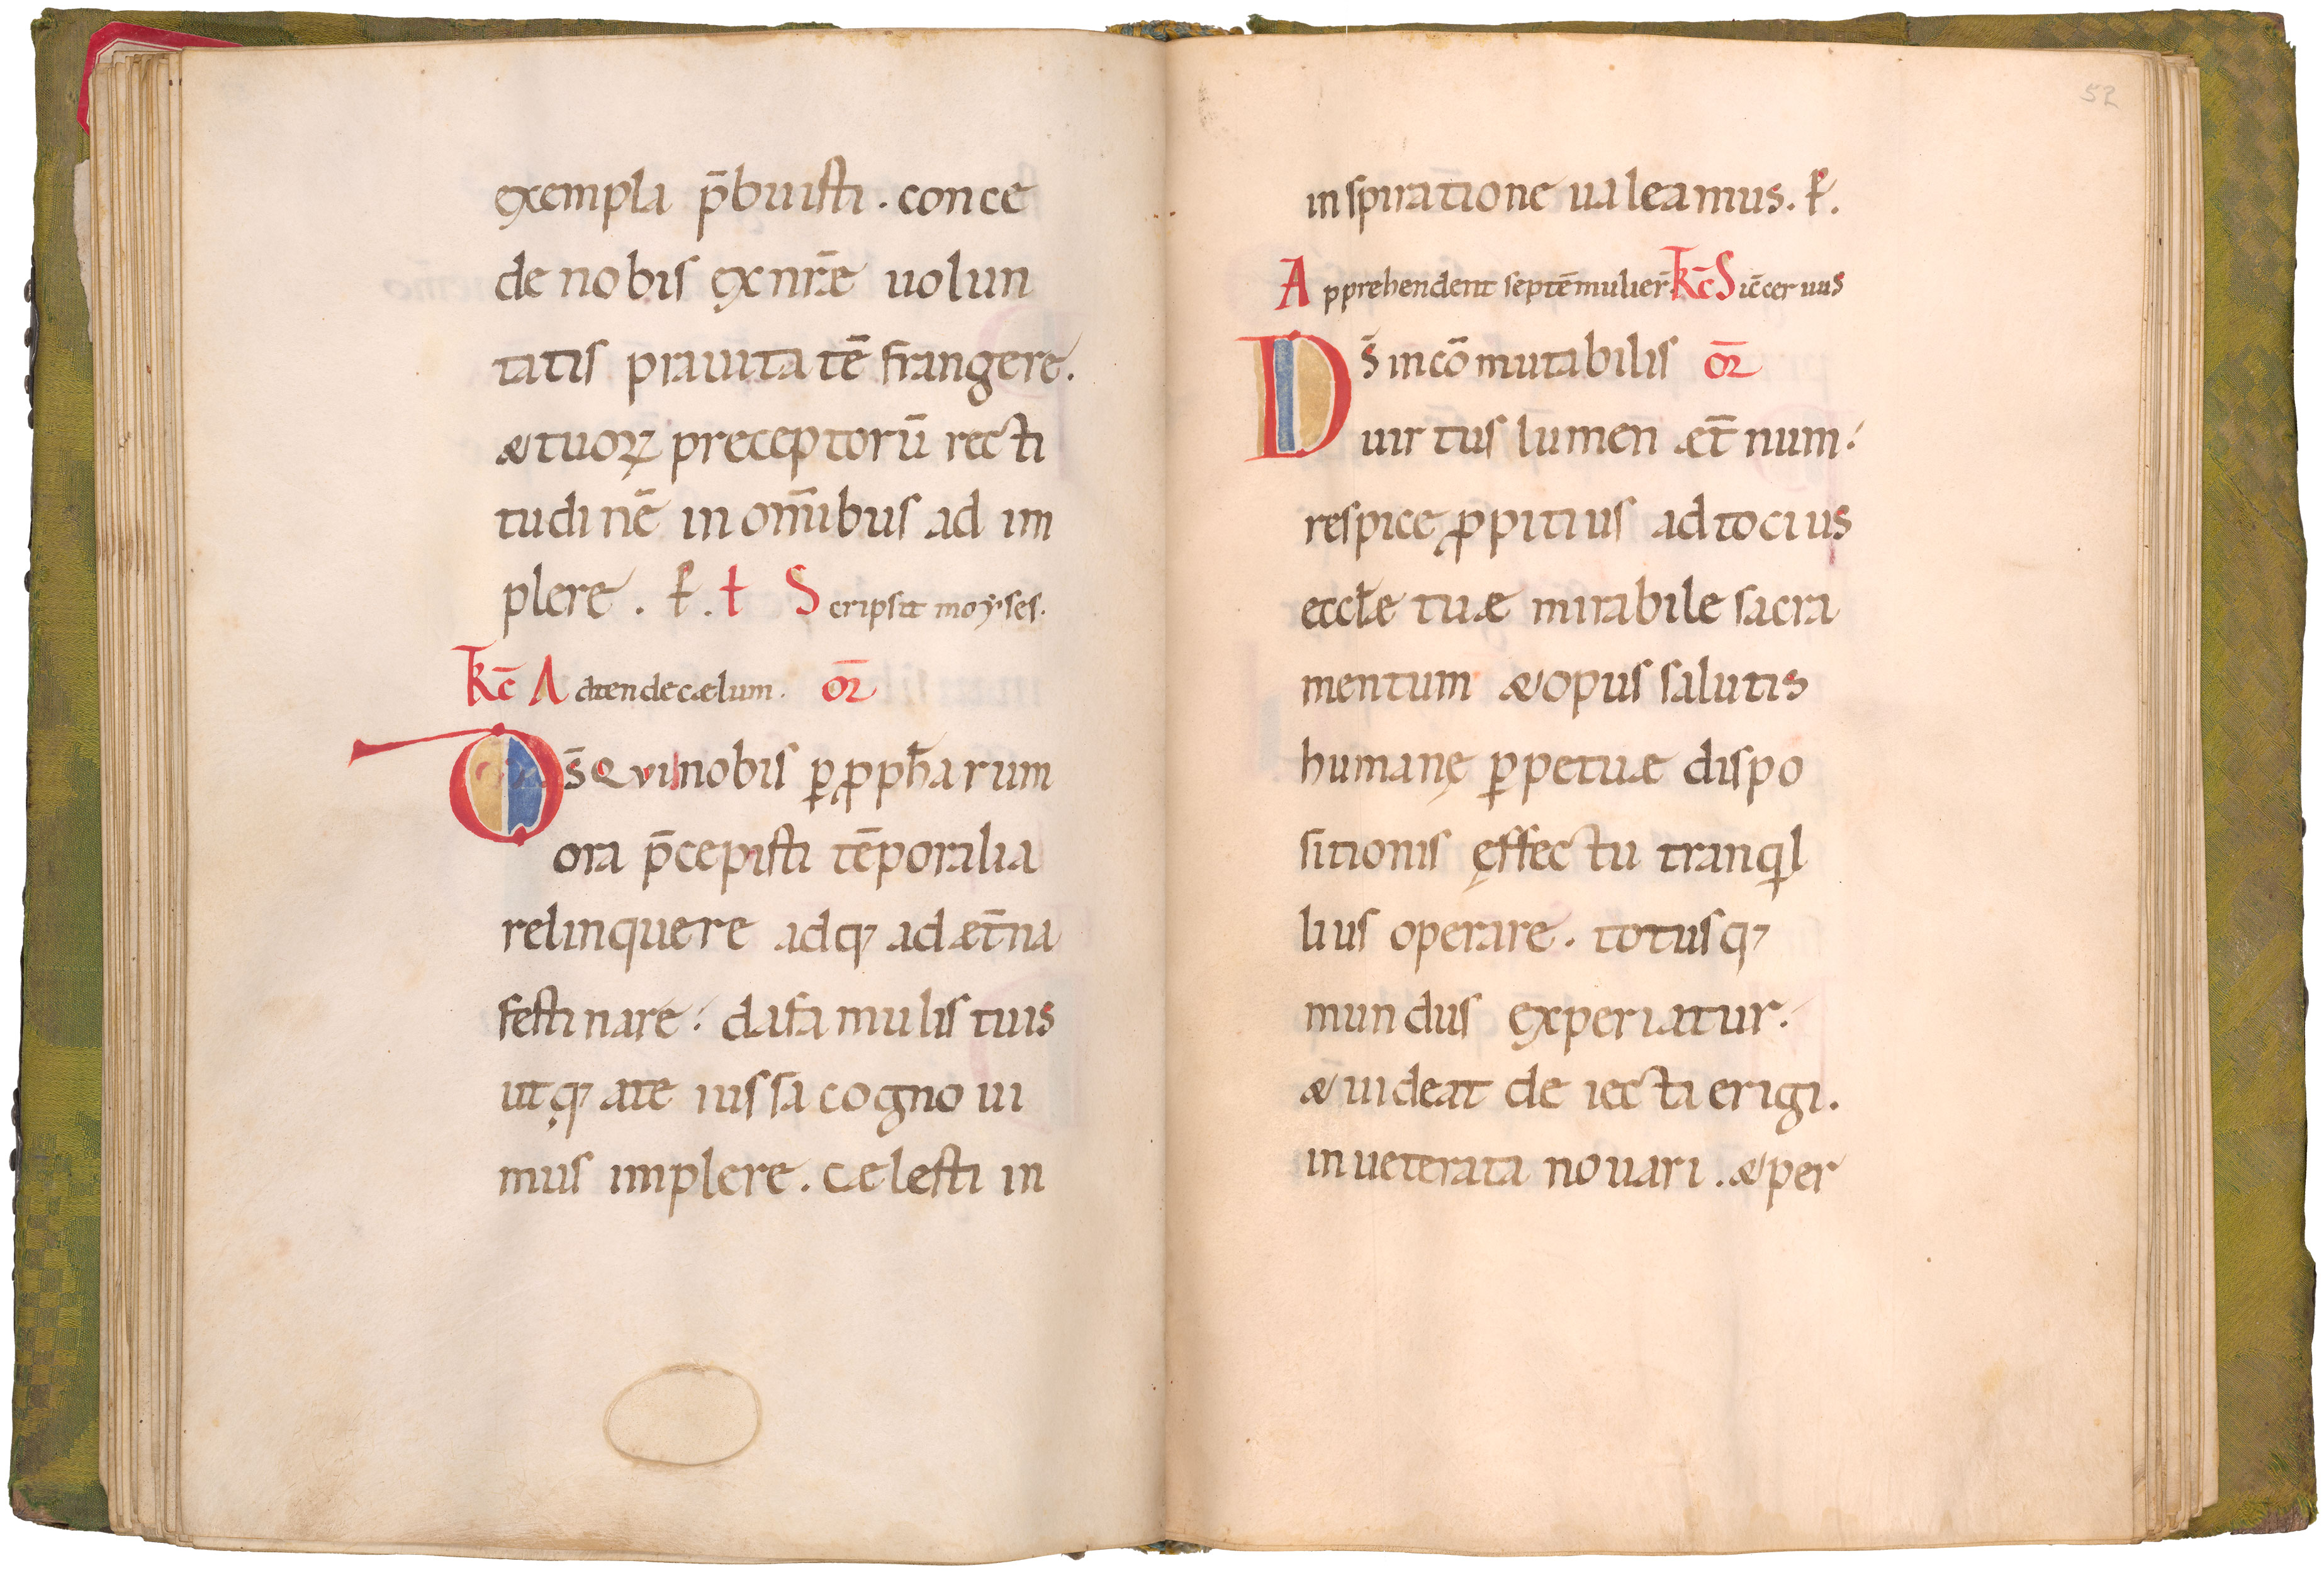 exempla p̄buisti . conce
de nobis ex nr̄ae uolun
tatis prauitatē frangere .
& tuoꝝ preceptorū recti
tudinē in om̄ibus ad im
plere . ꝑ . t Scripsit moẏses .
Kc̄ Adtende cælum . or̄
Ds̄ qui nobis ꝑ ꝓph̄arum
ora p̄cepisti tēporalia
relinquere adq; ad æt̄na
festinare . da famulis tuis
ut q; a te iussa cognoui
mus implere . cælesti in
52
inspiratione ualeamus . ꝑ .
Apprehendent septē mulier̄ Kc̄ Sic̄ ceruus
Ds̄ incōmutabilis or̄
uirtus lumen æt̄num .
respice ꝓpitius ad tocius
eccłæ tuæ mirabile sacra
mentum & opus salutis
humanę ꝑpetuæ dispo
sitionis ęffectu tranqil
lius operare . totusq;
mundus experiatur .
& uideat deiecta erigi .
inueterata nouari . & per